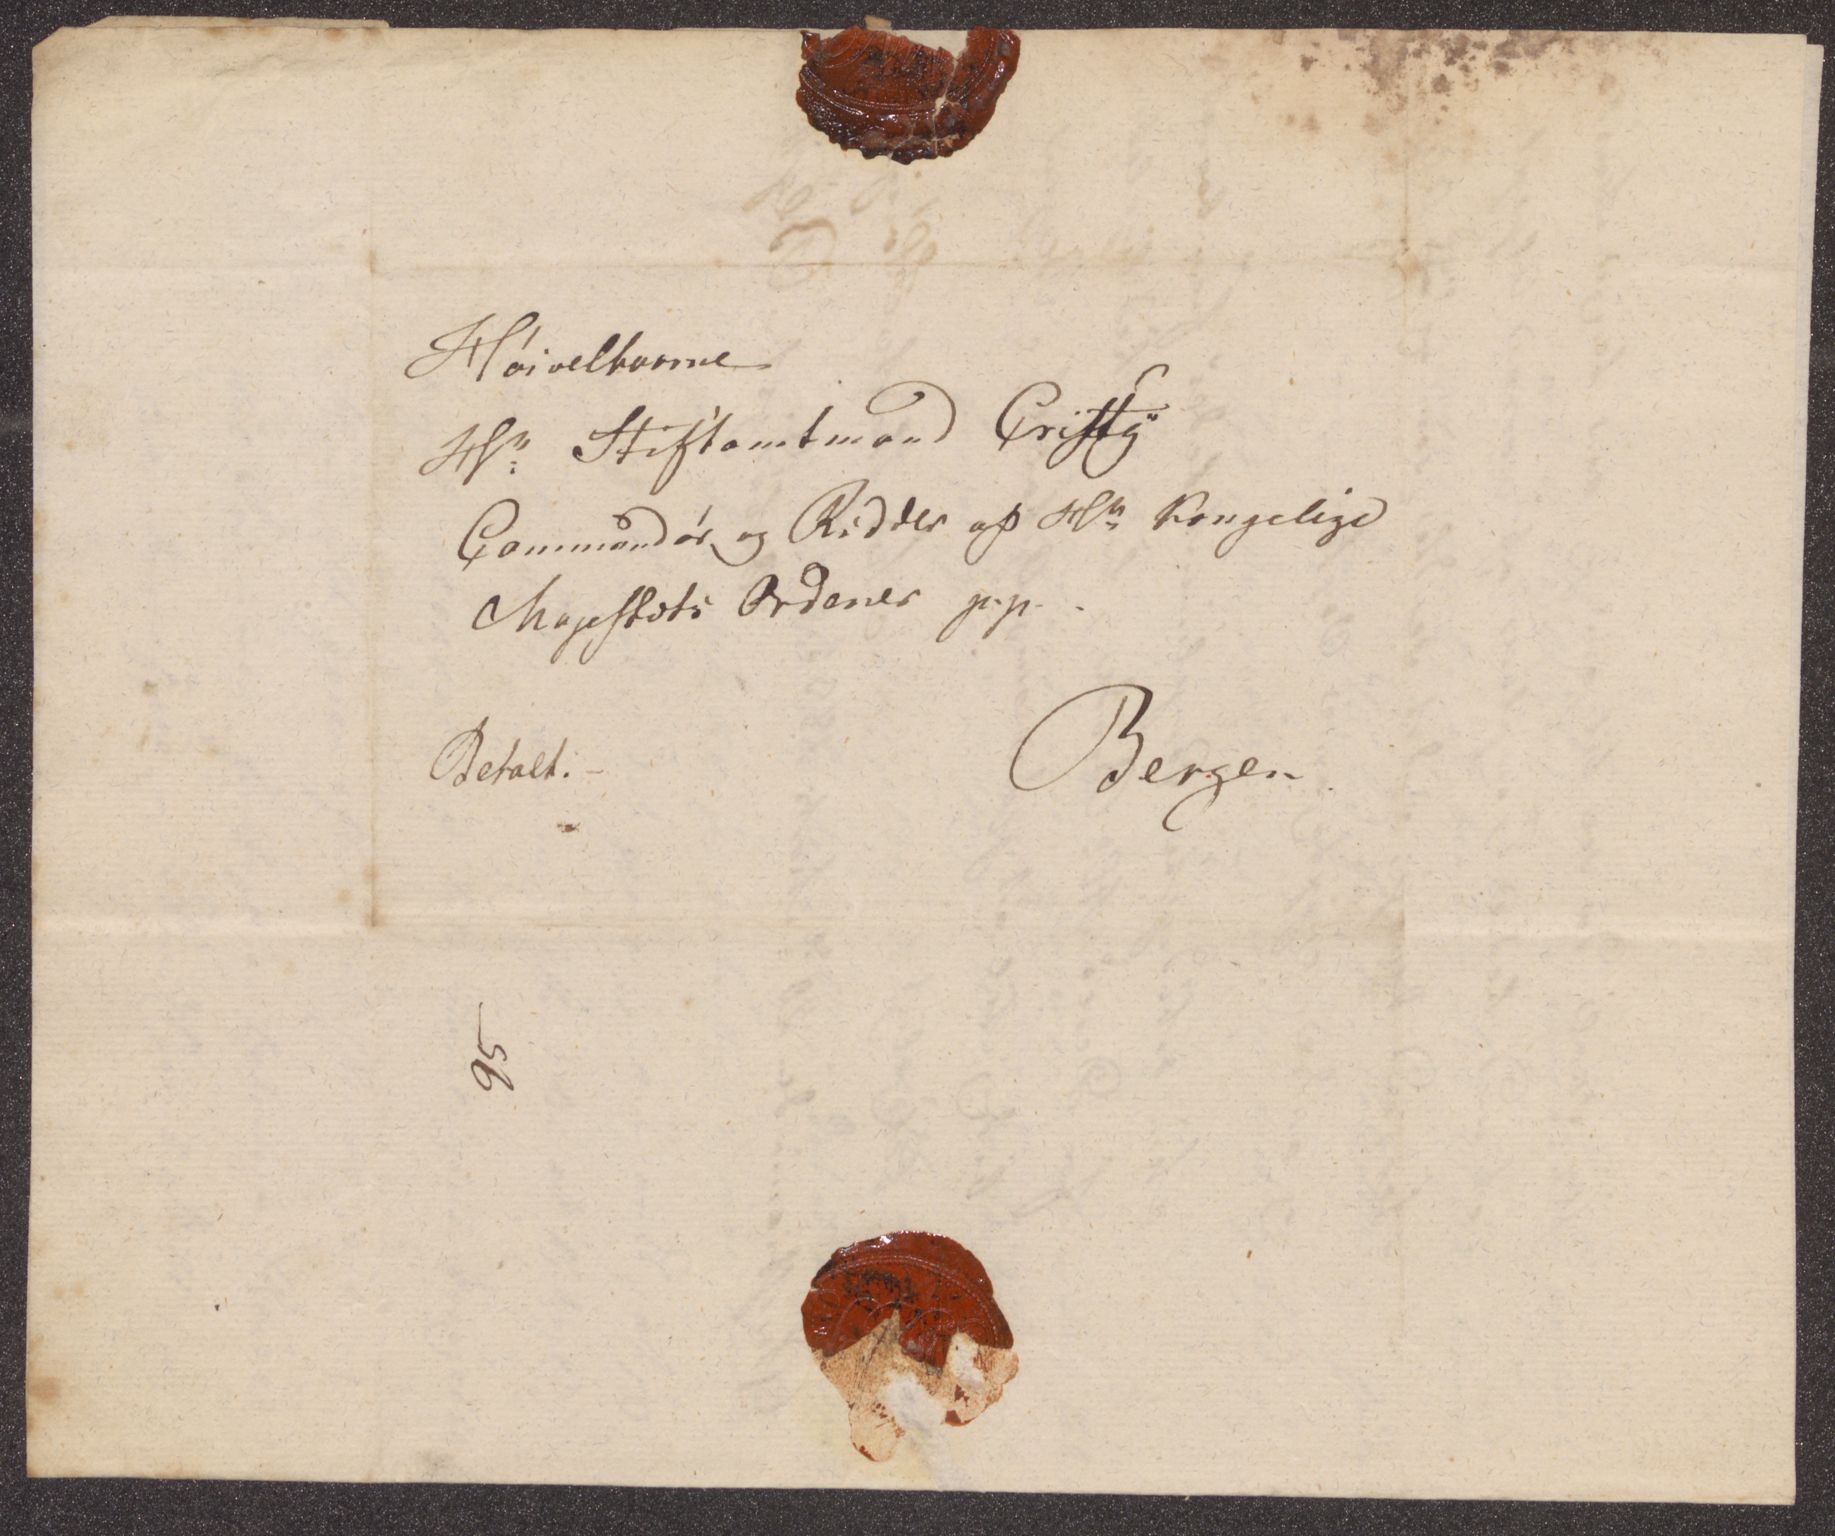 Høivelbaarne
Hr: Stiftamtmand Cristÿ
Commandør og Ridder af Hs: Kongelige
Majestæts Ordener p.p.
Betalt. –
Bergen
95